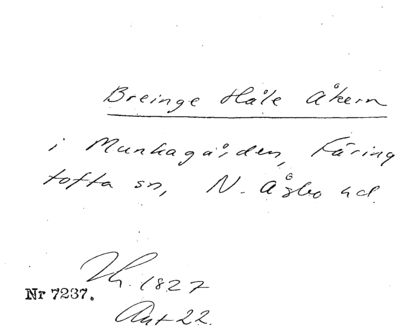 Breinge Håle Åkern
i Munkagården, Färing
tofta sn, N. Åsbo hd.
Th. 1827
Nr 7237.
Ant 22.